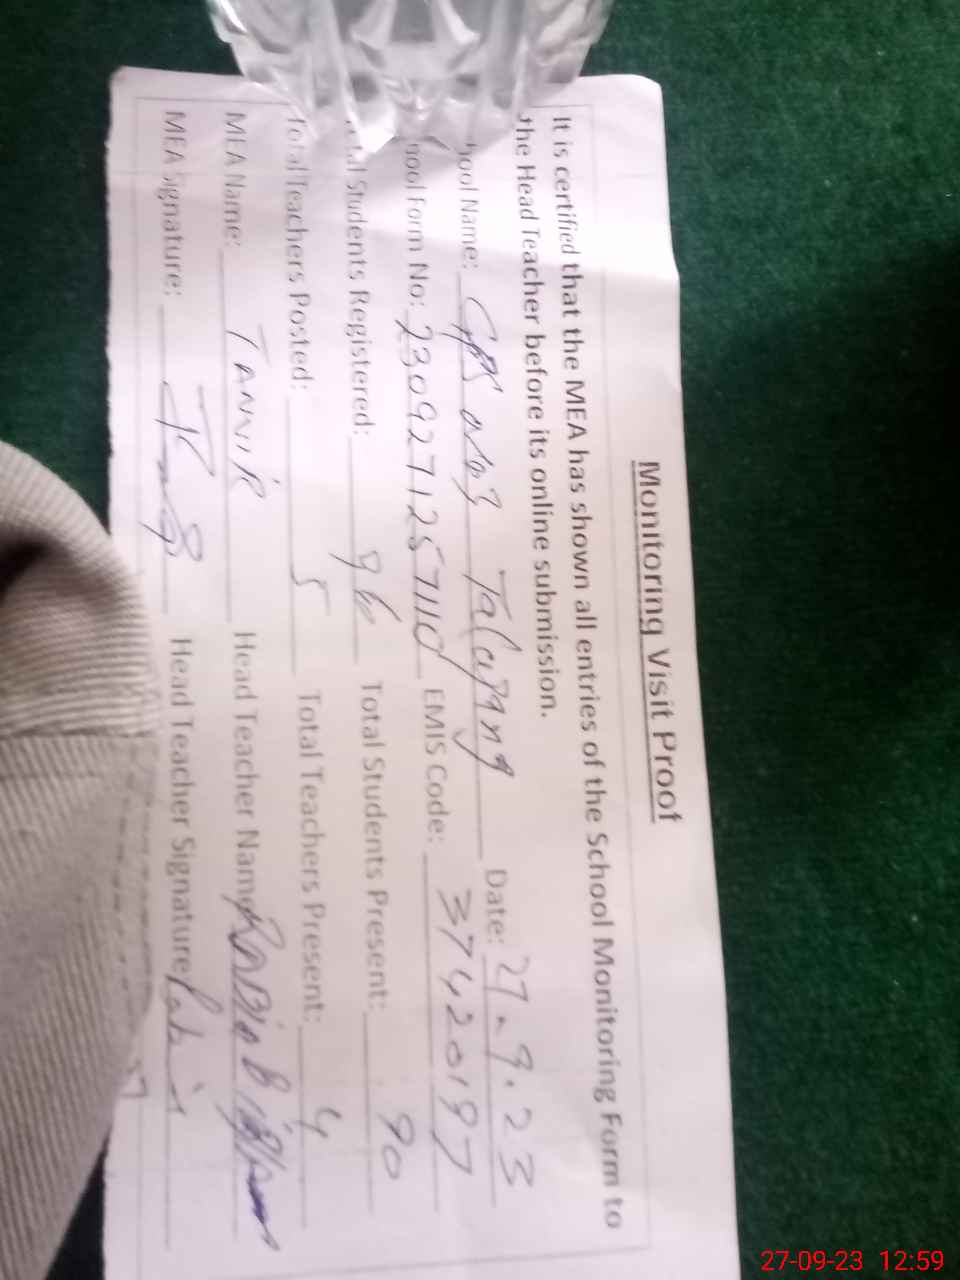 Monitoring Visit Proof
It is certified that the MEA has shown all entries of the School Monitoring Form to
the Head Teacher before its online submission.
hool Name: GPS No 3 Talagang Date: 27.9.23
hool Form No: 230927125711 EMIS Code: 37420197
tal Students Registered: 96 Total Students Present: 90
Total Teachers Posted: 5 Total Teachers Present: 4
MEA Name: TANVIR Head Teacher Name RABIA
MEA Signature: Head Teacher Signature
27-09-23 12:59